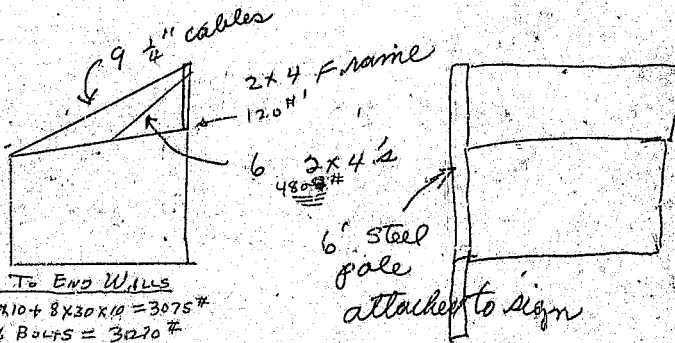 9 1/4" cables
2x4 Frame
120#'
6 2x4's
480#
6' steel
pole
attached to sign
To End Walls
x10+ 8x30x10 = 3075#
Bolts = 31270#